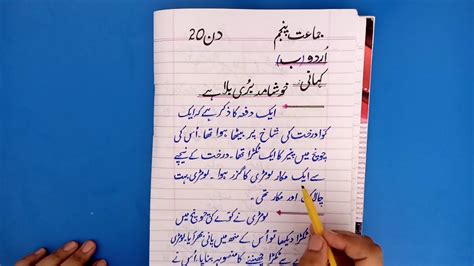 جماعت پنجم دن 20
اُردو (ب)
کہانی
خوشامد بُری بلا ہے
ایک دفعہ کا ذکر ہے کہ ایک
کوا درخت کی شاخ پر بیٹھا ہوا تھا۔ اُس کی
چونچ میں پنیر کا ایک ٹکڑا تھا۔ درخت کے نیچے
سے ایک مکار لومڑی کا گزر ہوا۔ لومڑی بہت
چالاک اور مکار تھی۔
لومڑی نے کوے کی چونچ میں
ٹکڑا دیکھا تو اُس کے منھ میں پانی بھر آیا۔ لومڑی
نے ٹکڑا چھیننے کا منصوبہ بنایا۔ اُس نے